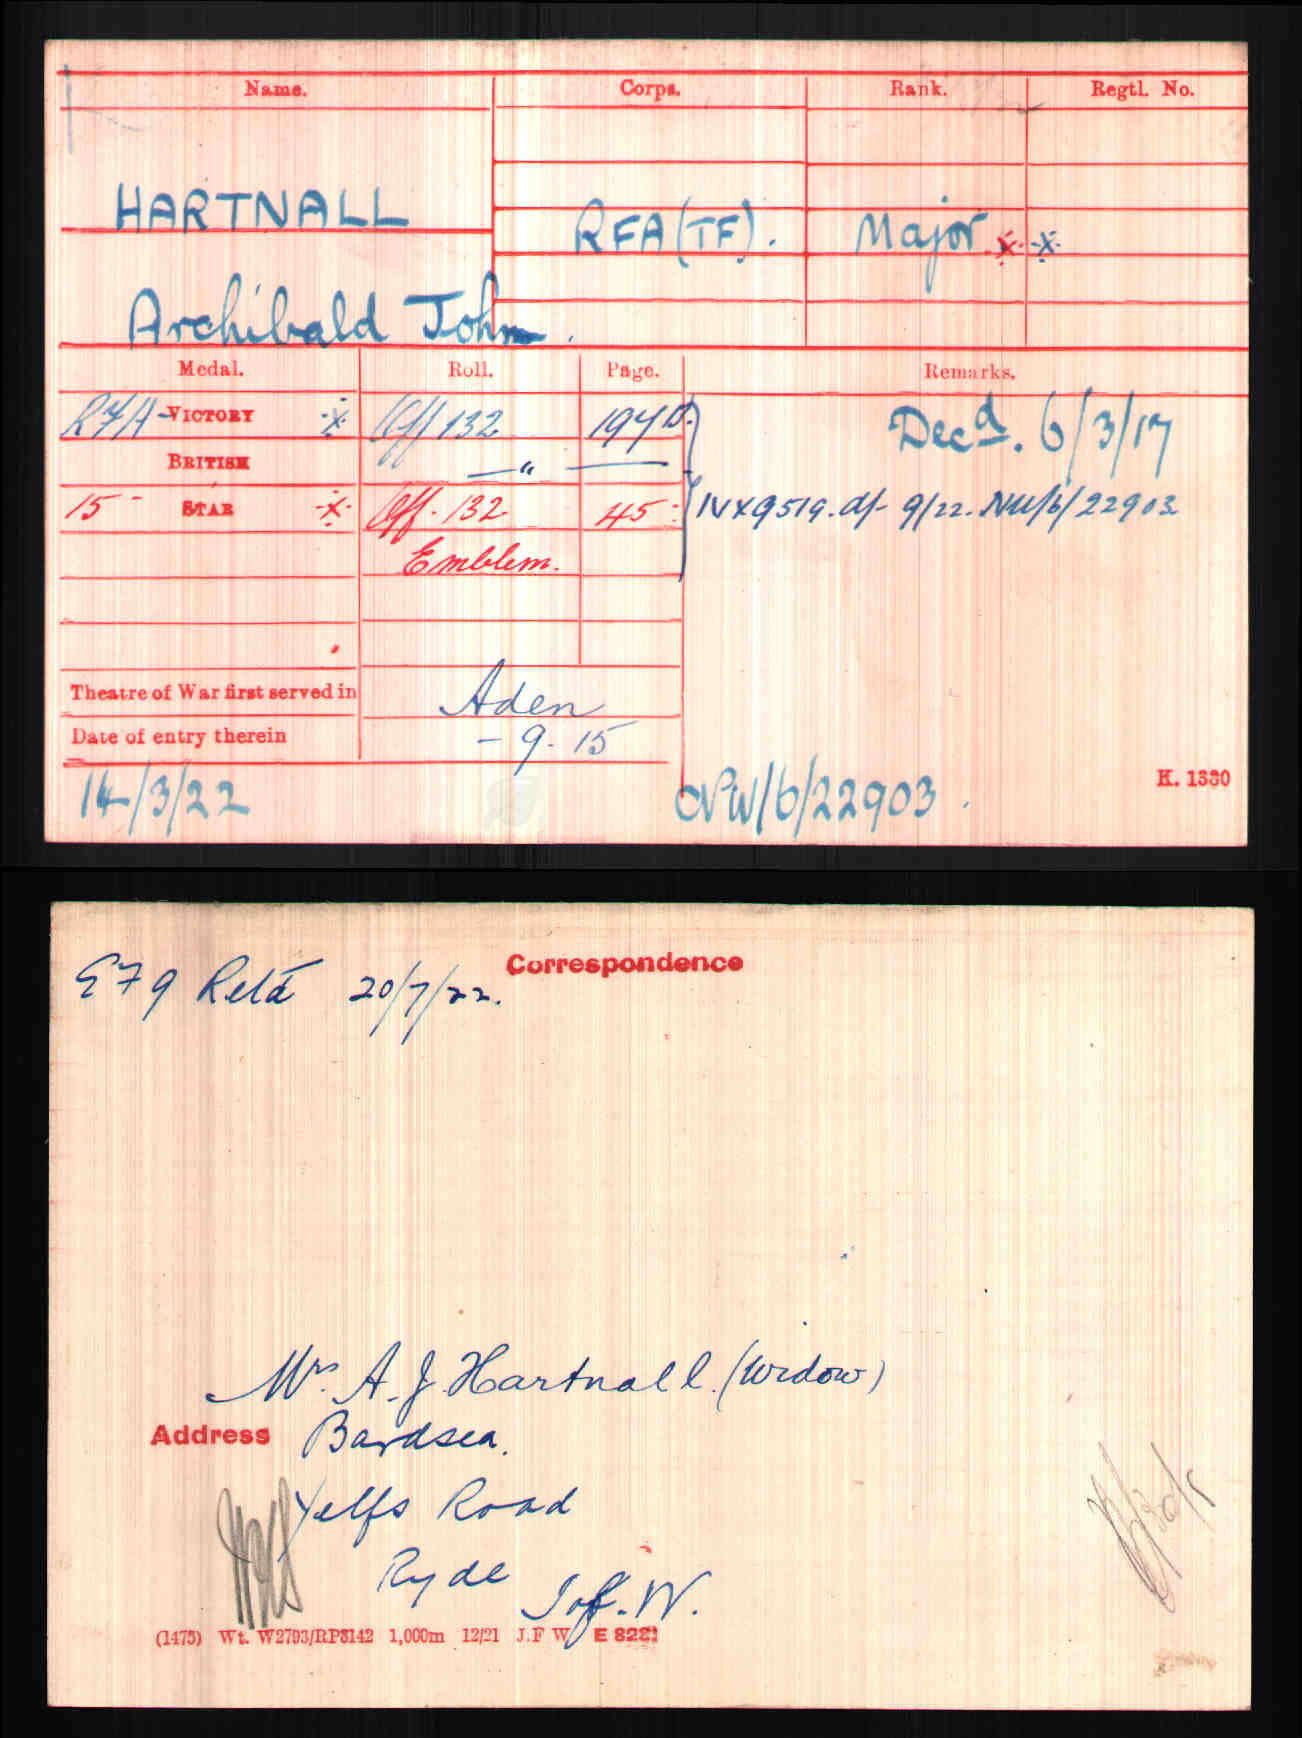 Name. Corps. Rank. Regtl. No.
HARTNALL RFA(TF). Major X X
Archibald John.
Medal. Roll. Page. Remarks.
RFA - VICTORY X Off 132 194D. Decd. 6/3/17
BRITISH — " —
15 - STAR X Off. 132 45 IVX9519. df- 9/22. NW/6/22903
Emblem.
Theatre of War first served in Aden
Date of entry therein - 9. 15
14/3/22 NW/6/22903. K. 1380
Correspondence
EF9 Retd 20/7/22.
Mrs. A. J. Hartnall. (Widow)
Address Bardsea.
Yelfs Road
Ryde
I of. W.
(1475) Wt. W2793/RP3142 1,000m 12/21 J.F W E 8221